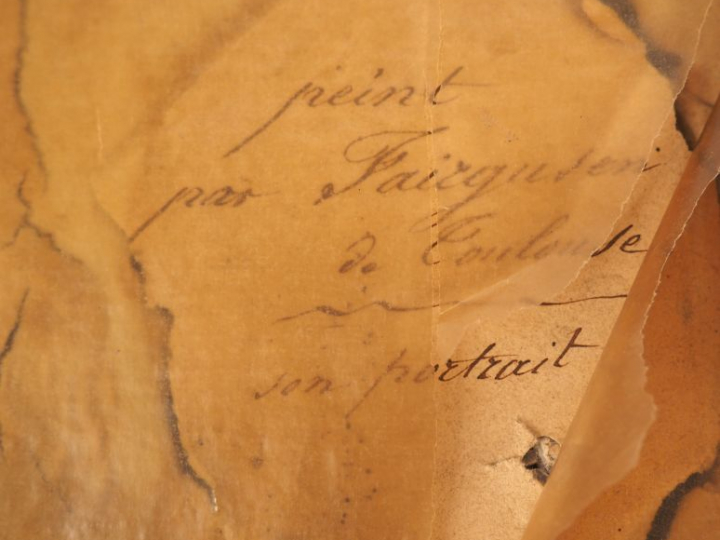 peint
par Fairguson
de Toulouse
son portrait